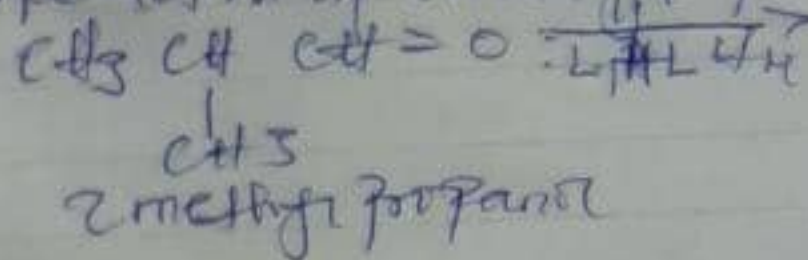 CH3 CH CH = O
CH3
2 methyl propanol